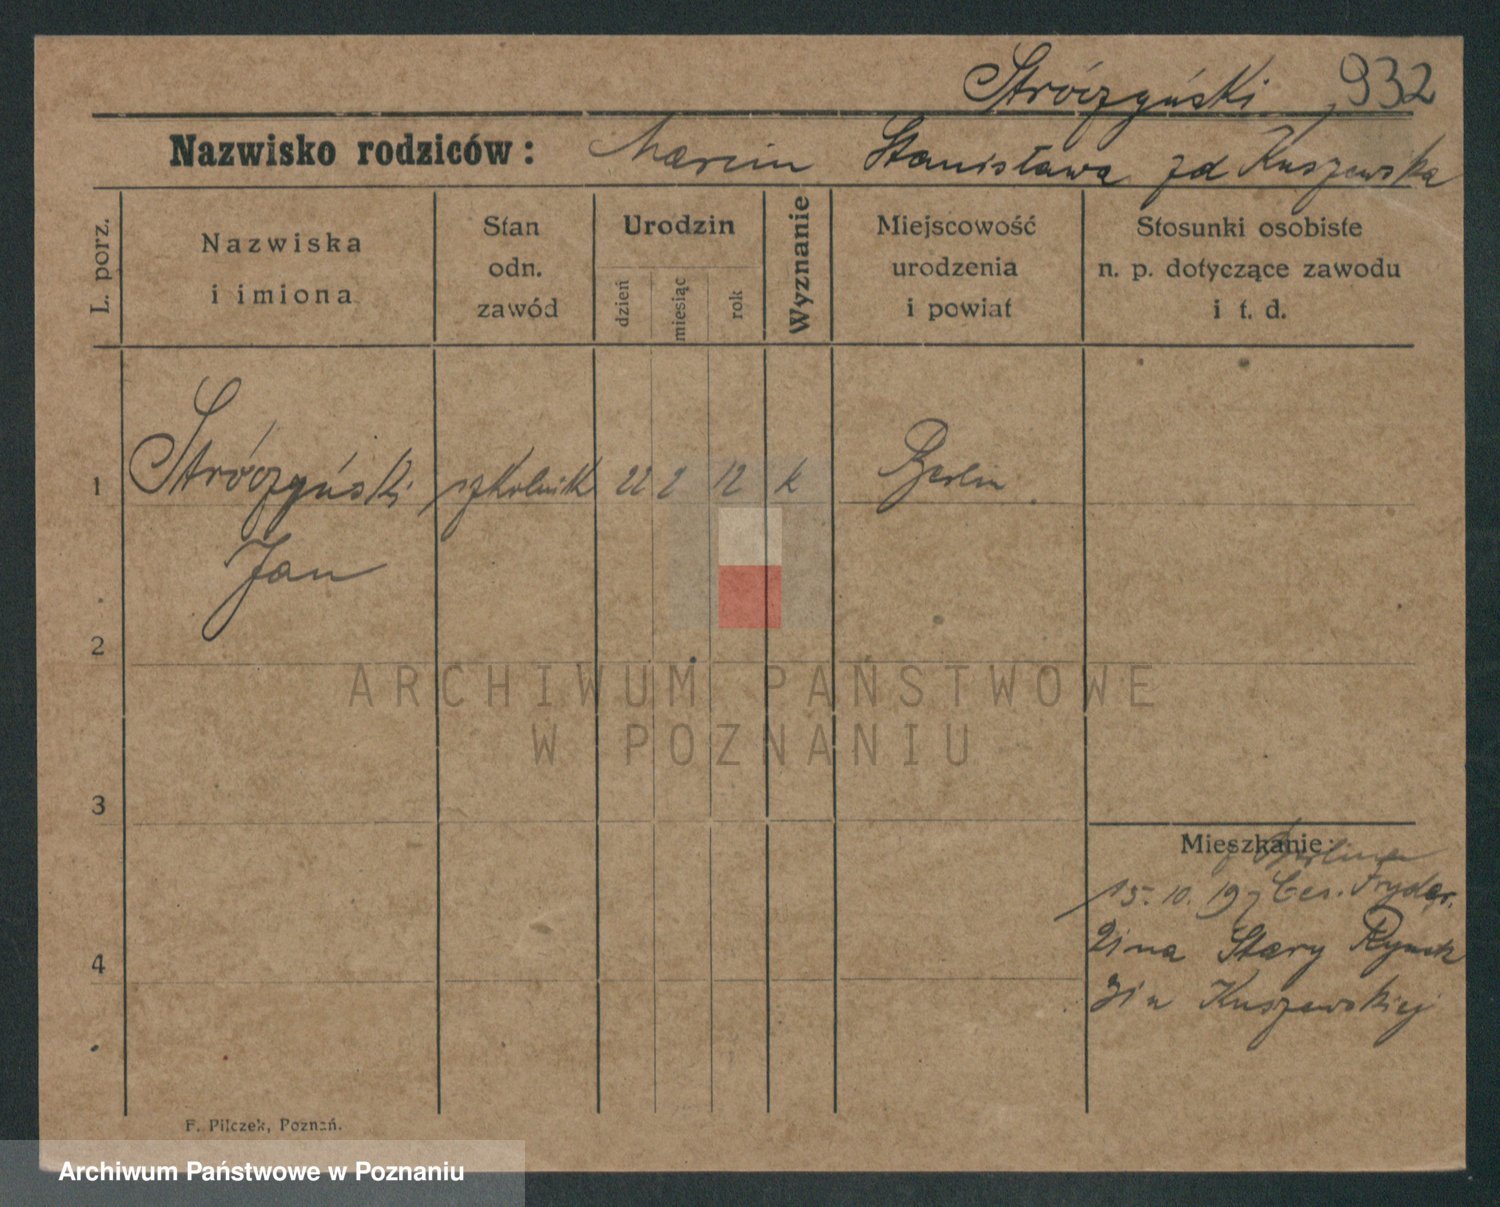 Stróczyński 932
Nazwisko rodziców: Marcin Stanisława zd Kuszewska
L. porz.
Nazwiska
i imiona
Stan
odn.
zawód
Urodzin
dzień
miesiąc
rok
Wyznanie
Miejscowość
urodzenia
i powiat
Stosunki osobiste
n. p. dotyczące zawodu
i t. d.
1 Stróczyński szkolnik 22 2 12 k Berlin
Jan
2
3
4
ARCHIWUM PAŃSTWOWE
W POZNANIU
Mieszkanie:
z Berlina
15. 10. 19 Ces. Fryder.
Stary Rynek
Kuszewskiej
F. Pilczek, Poznań.
Archiwum Państwowe w Poznaniu